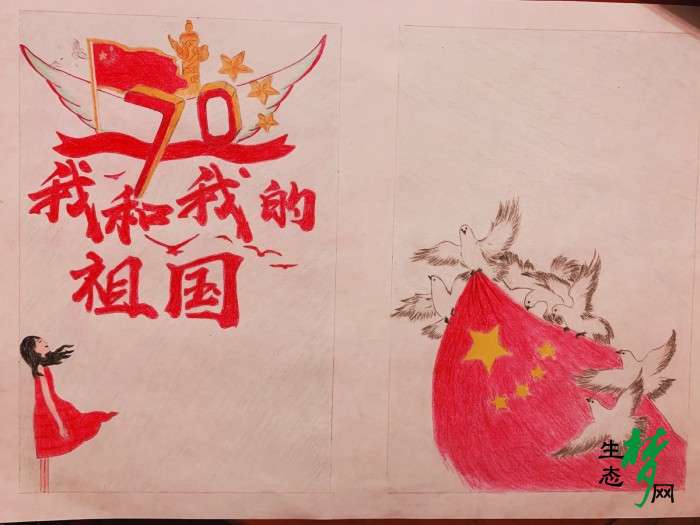 70
我和我的
祖国
生态梦网